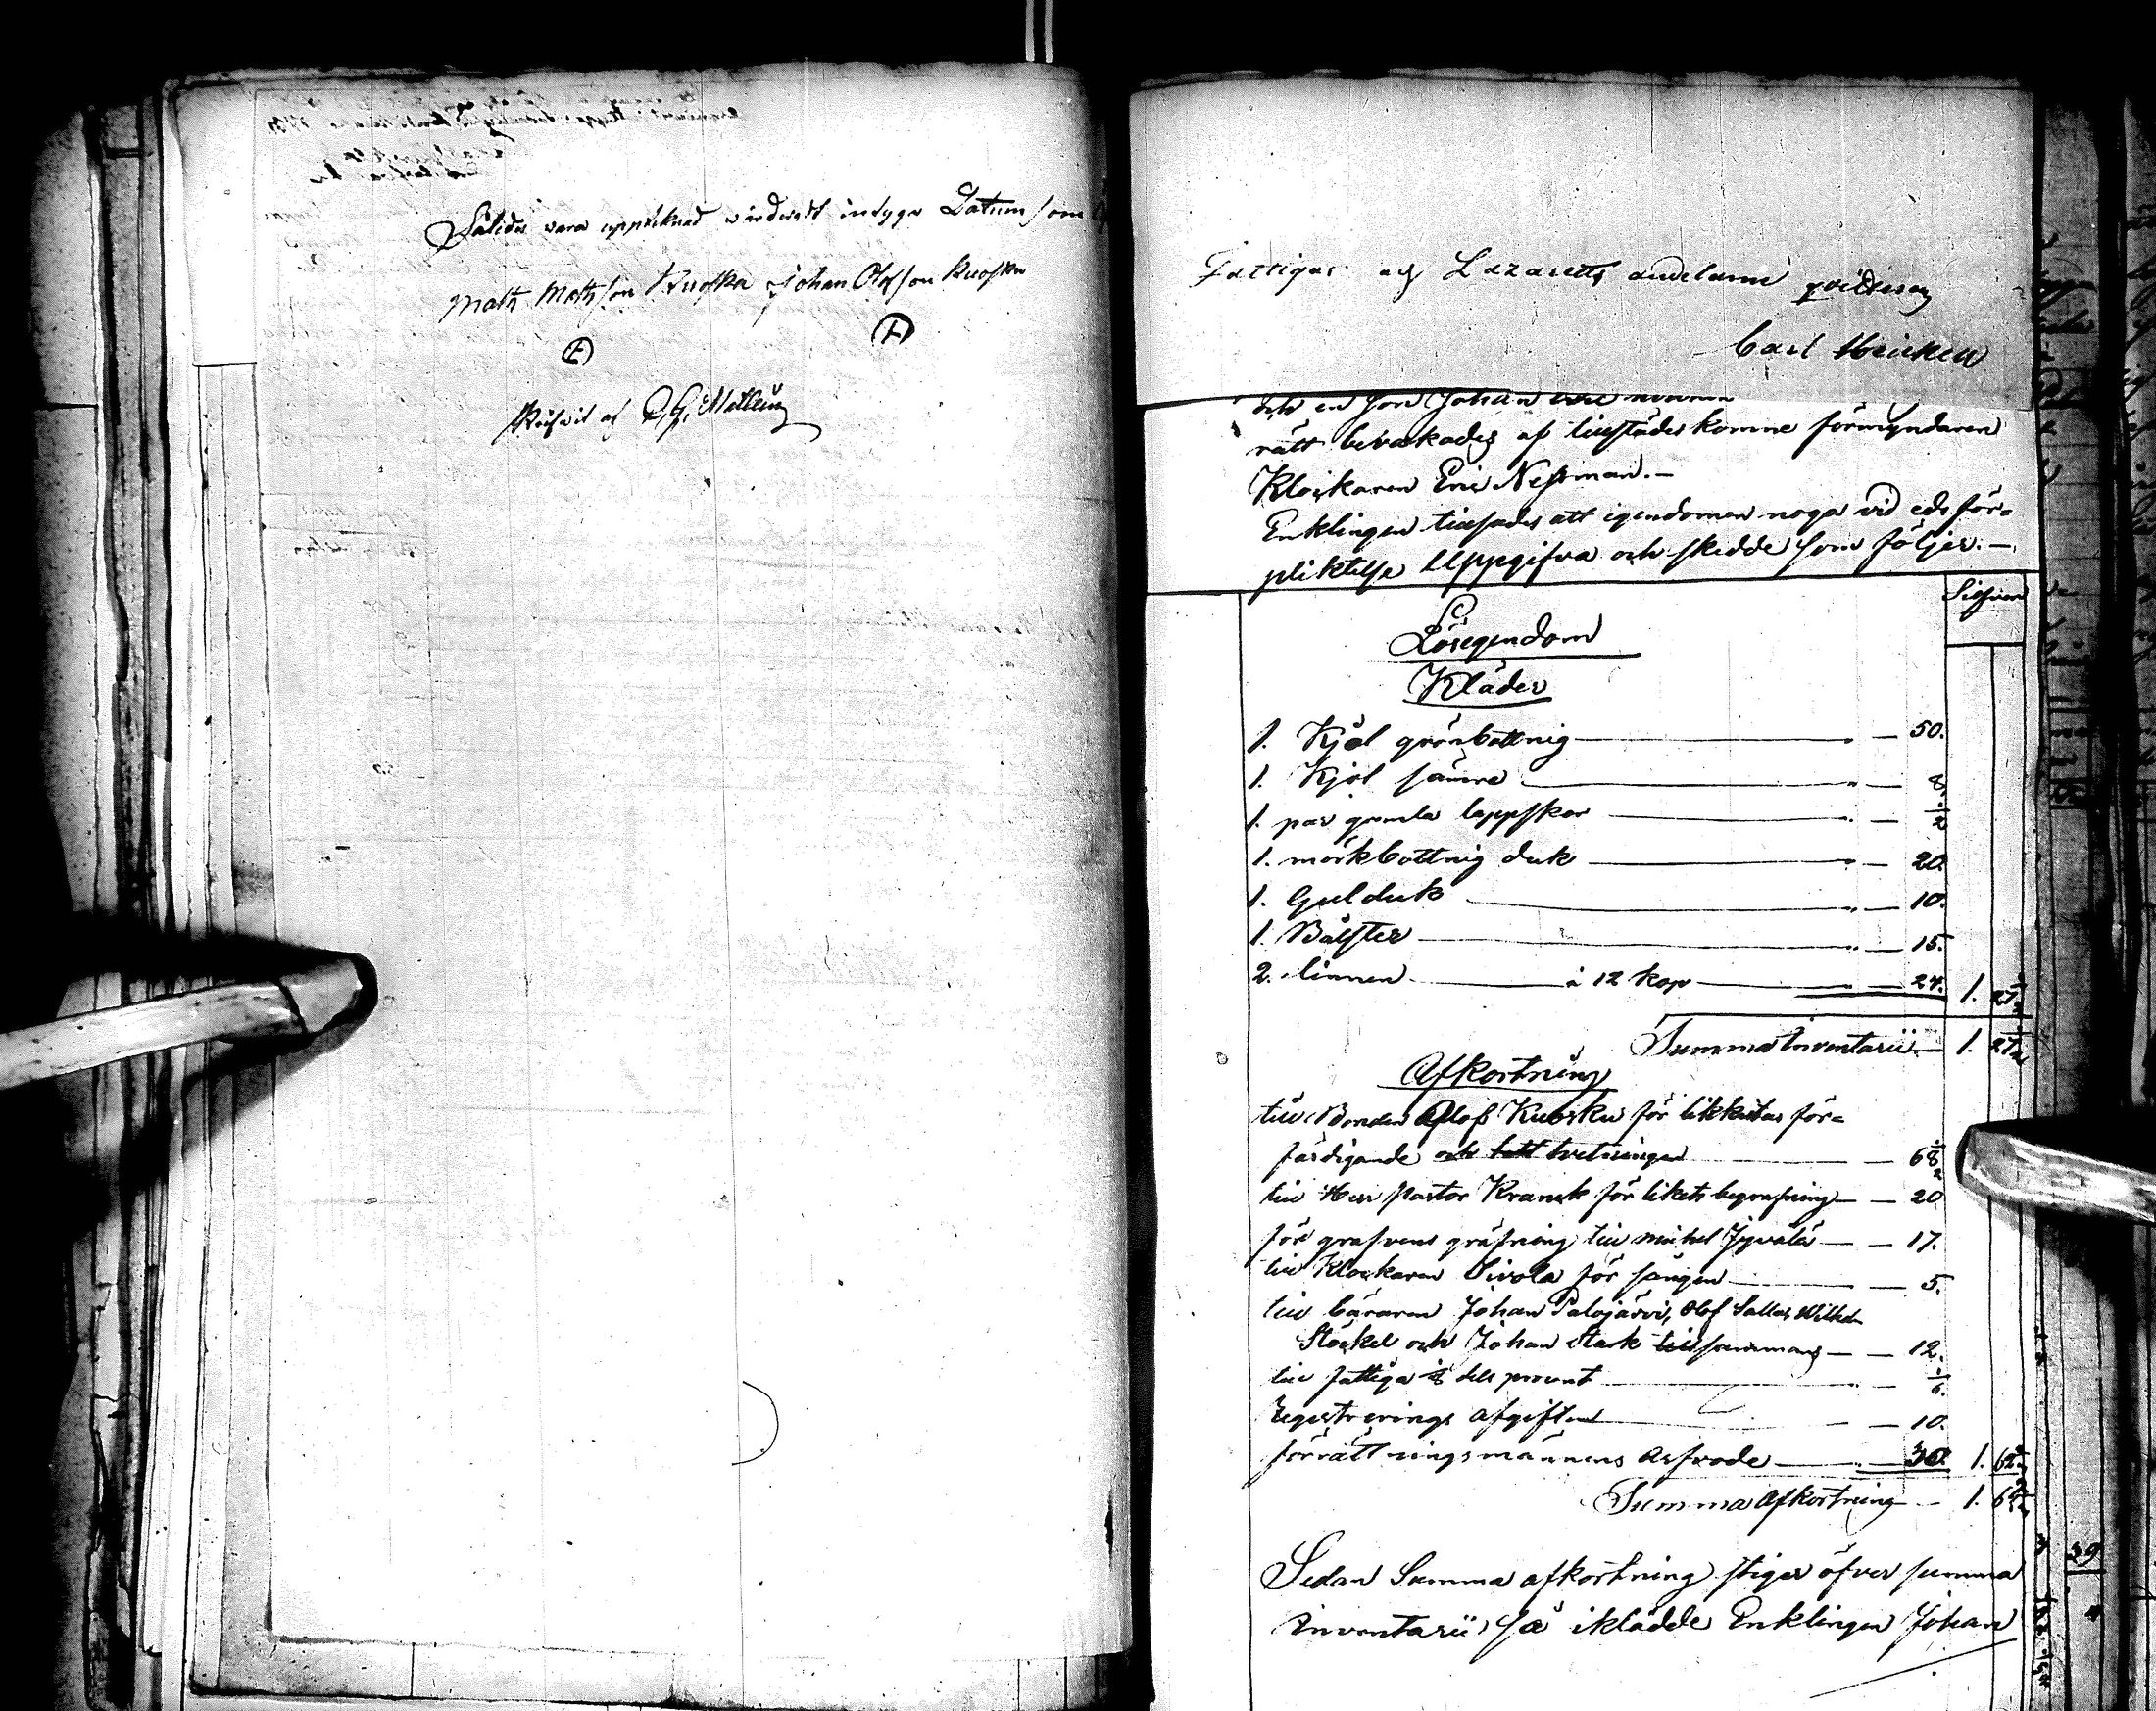 Således vara upptecknad värderadt intyga Datum som
Math Mathsson Kuoska Johan Olofsson Kuoska
Skrifvit af
Fattigas och Lazaretts andelarne qvitteras
Carl Heickell
och en son Johan
rätt bevakades af tillstädes komne förmyndaren
Klockaren Eric Nessman.-
Enklingen tillsades att egendomen noga vid eds för=
pliktelse Uppgifva och skedde som följer.-
Silfver
Lösegendom
Kläder
1. Kjol grönbottnig " 50.
1. Kjol sämre " 8.
1. par gamla lappskor " ½
1. mörkbottnig duk " 20.
1. Gul duk " 10.
1. Bolster " 15.
2. linnen à 12 kop " 24. 1. 27½
Summa Inventarii 1. 27½
Afkortning
till Bonden Olof Kuosku för likkistas för=
färdigande och tvetningen 68½
till Herr Pastor Kranck för likets begrafning 20
för grafvens gräfning till Michel Jyvälä 17.
till Klockaren Sivola för sången 5.
till bäraren Johan Palojärvi, Olof Salla, Wilhelm
Stöckel och Johan Stark tillsammans 12.
till fattiga ⅛ dels procent ⅙.
Registrerings afgiften 10.
förrättningsmännens arfvode 30. 1. 62⅔
Summa Afkortning 1. 62⅔
Sedan Summa afkortning stiger öfver summa
Inventarii, så iklädde Enklingen Johan
39